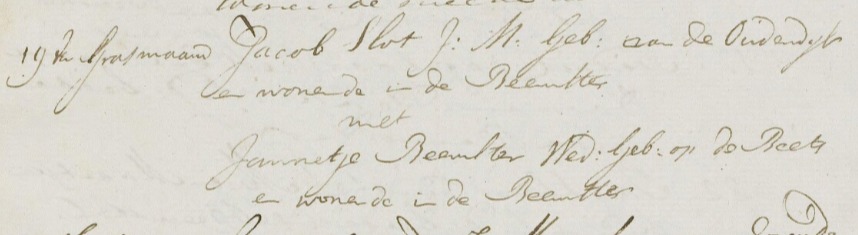 19 den Grasmaand Jacob Slot J: M. Geb: aan de Oudendijk
en wonende in de Beemster
met
Jannetje Beemster Wed: Geb: op de Beets
en wonende in de Beemster